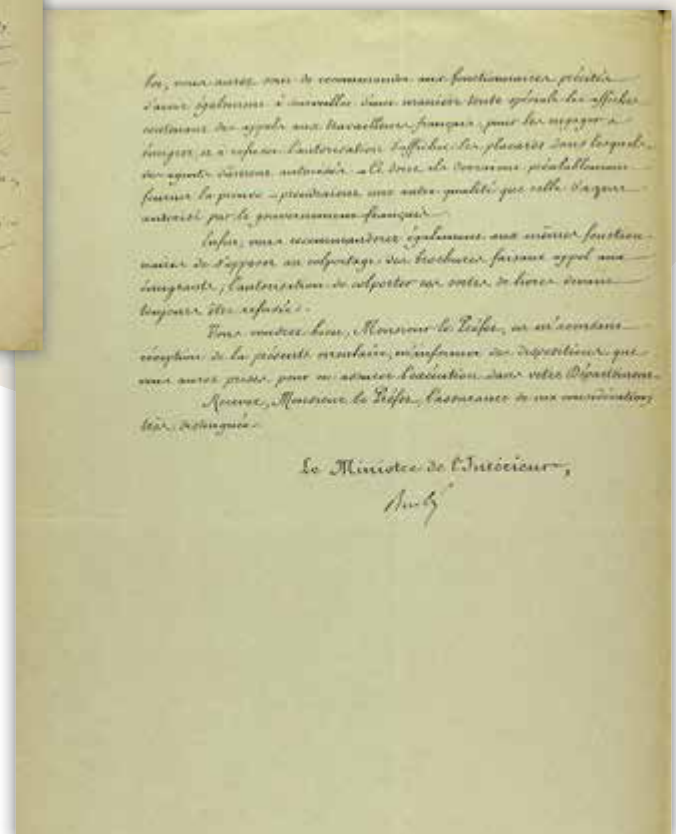 loi, vous aurez soin de recommander aux fonctionnaires précités
d'avoir également à surveiller d'une manière toute spéciale les affiches
contenant des appels aux travailleurs français pour les engager à
émigrer et à refuser l'autorisation d'afficher les placards dans lesquels
des agents dûment autorisés _ ce dont ils devraient préalablement
fournir la preuve _ prendraient une autre qualité que celle d'agent
autorisé par le gouvernement français.
Enfin, vous recommanderez également aux mêmes fonction-
naires de s'opposer au colportage des brochures faisant appel aux
émigrants, l'autorisation de colporter ces sortes de livres devant
toujours être refusée.
Vous voudrez bien, Monsieur le Préfet, en m'accusant
réception de la présente circulaire, m'informer des dispositions que
vous aurez prises pour en assurer l'exécution dans votre Département.
Recevez, Monsieur le Préfet, l'assurance de ma considération
très distinguée.
Le Ministre de l'Intérieur,